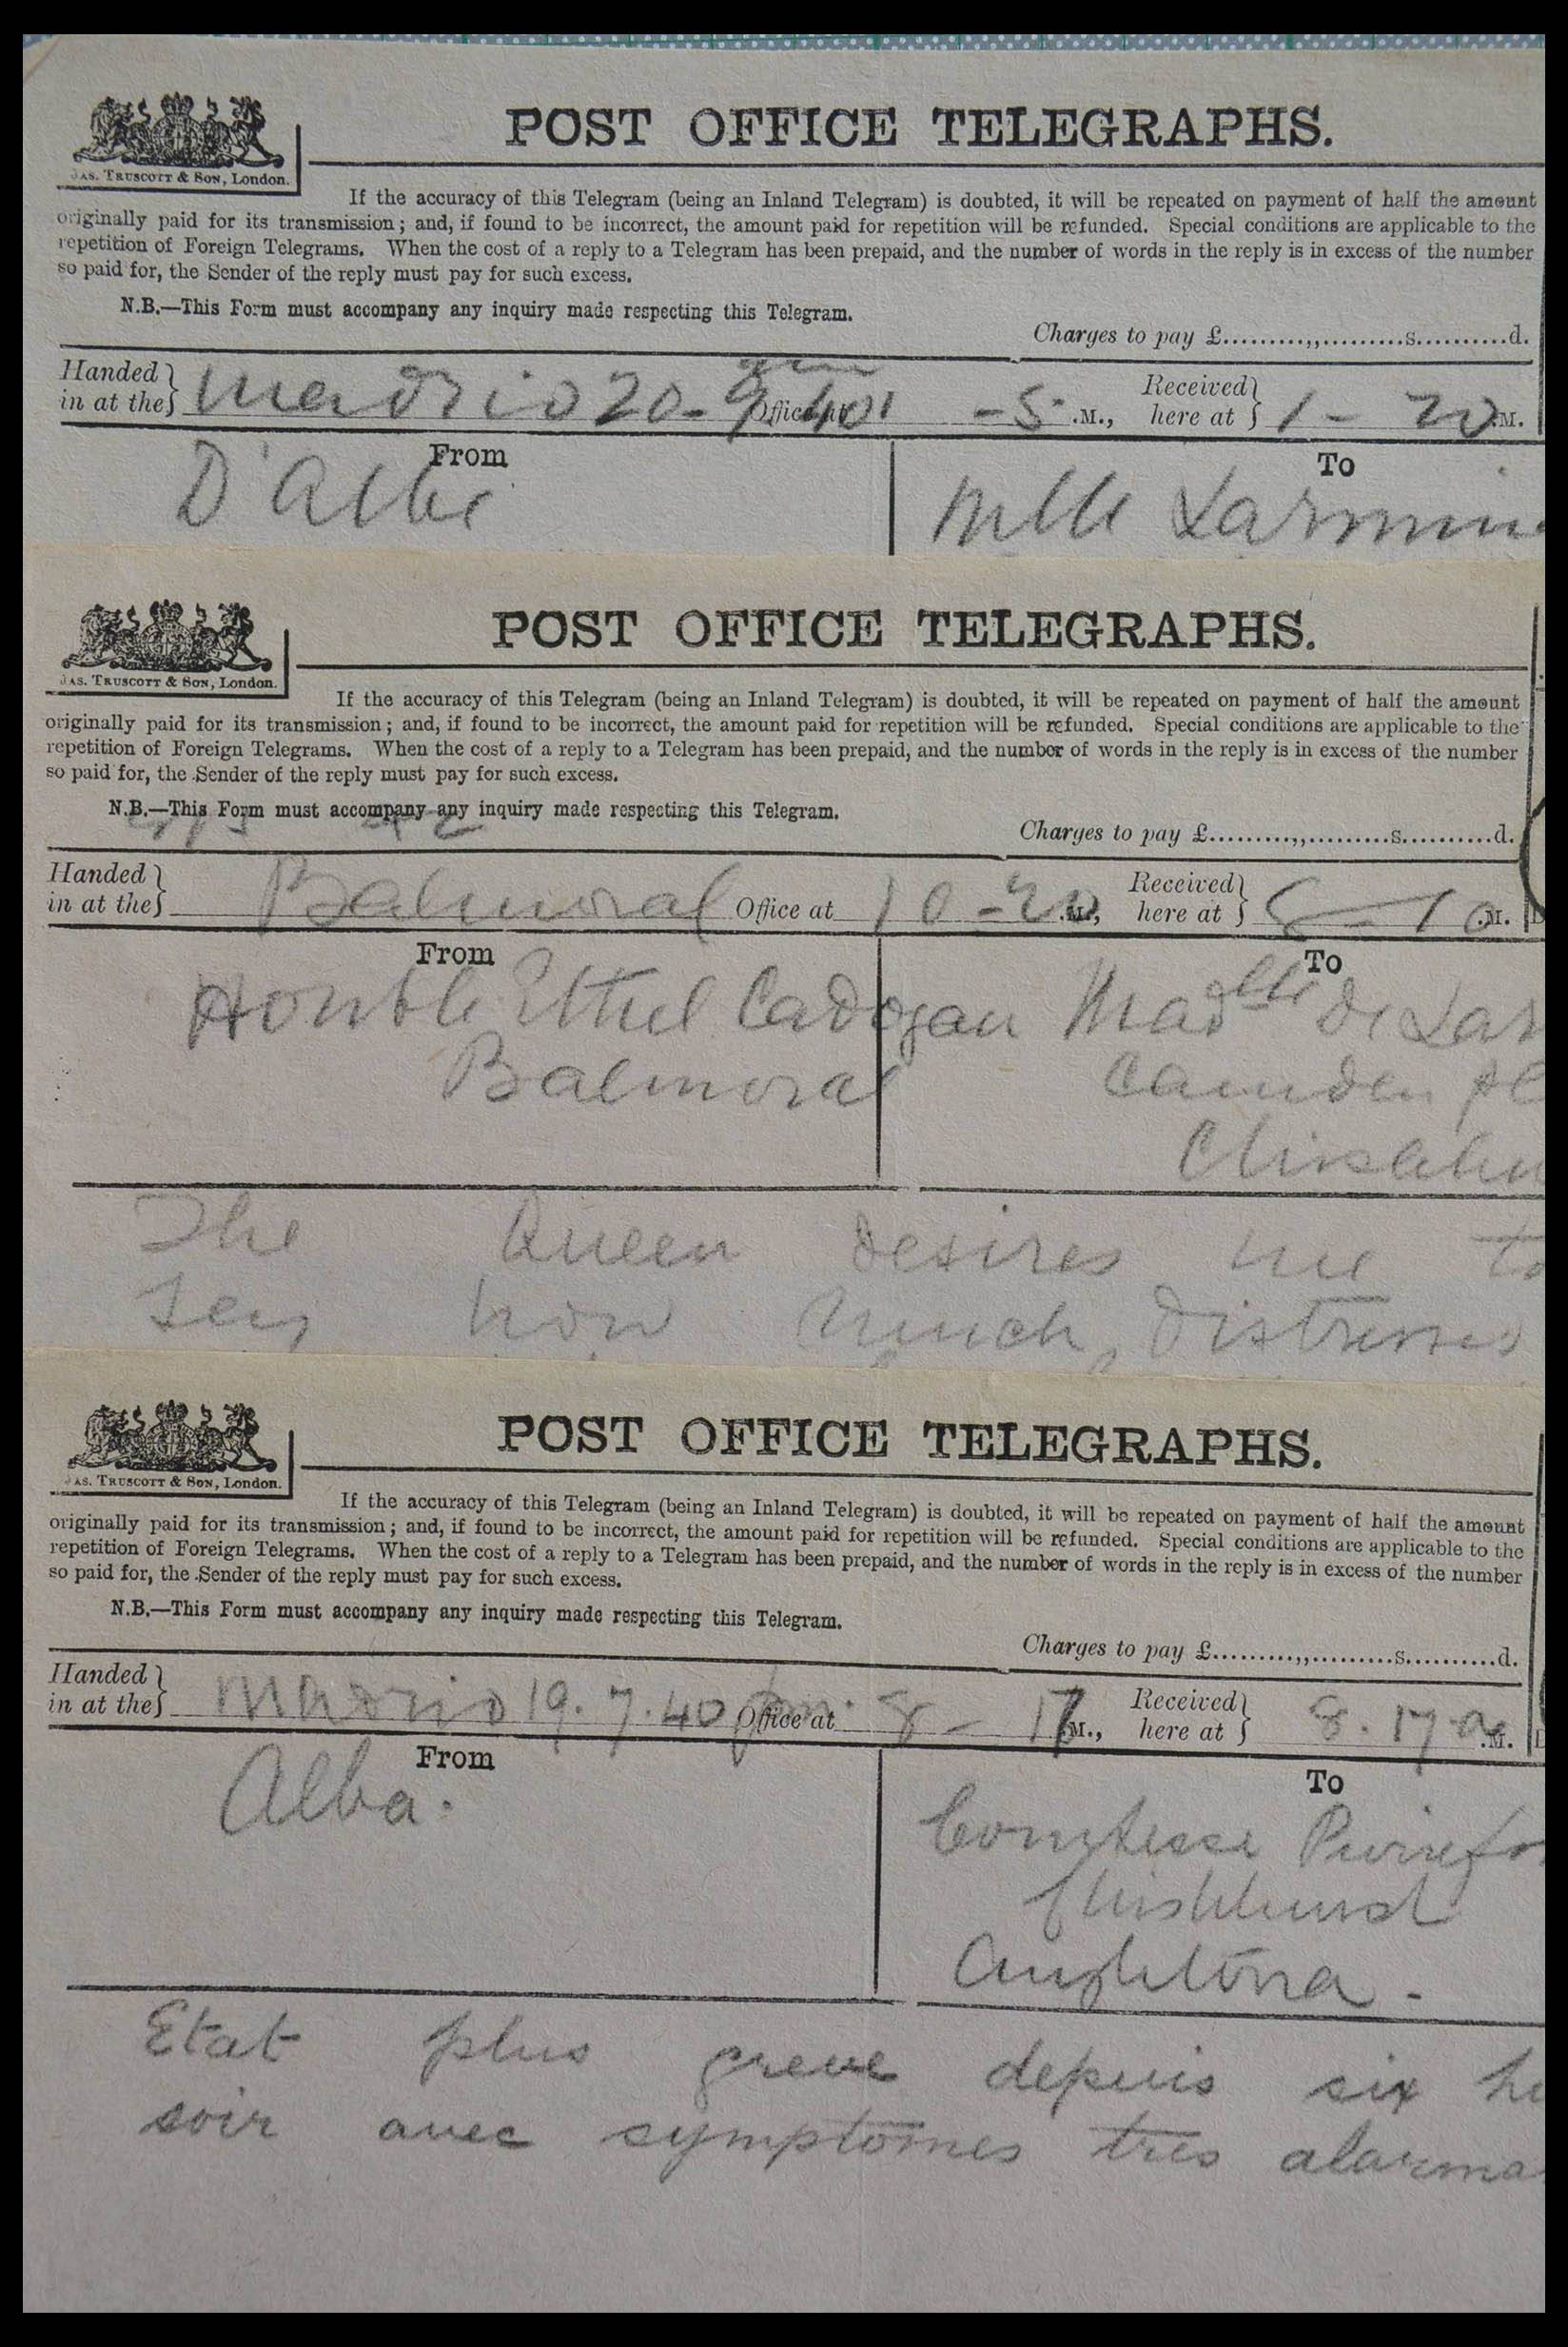 JAS. TRUSCOTT & SON, London.
POST OFFICE TELEGRAPHS.
If the accuracy of this Telegram (being an Inland Telegram) is doubted, it will be repeated on payment of half the amount
originally paid for its transmission; and, if found to be incorrect, the amount paid for repetition will be refunded. Special conditions are applicable to the
repetition of Foreign Telegrams. When the cost of a reply to a Telegram has been prepaid, and the number of words in the reply is in excess of the number
so paid for, the Sender of the reply must pay for such excess.
N.B.—This Form must accompany any inquiry made respecting this Telegram.
Charges to pay £..........,,..........s..........d.
Handed in at the } Madrid 20- Office at -5 .M., Received here at } 1 - 20 .M.
From To
D'Albe Mlle Larmin
JAS. TRUSCOTT & SON, London.
POST OFFICE TELEGRAPHS.
If the accuracy of this Telegram (being an Inland Telegram) is doubted, it will be repeated on payment of half the amount
originally paid for its transmission; and, if found to be incorrect, the amount paid for repetition will be refunded. Special conditions are applicable to the
repetition of Foreign Telegrams. When the cost of a reply to a Telegram has been prepaid, and the number of words in the reply is in excess of the number
so paid for, the Sender of the reply must pay for such excess.
N.B.—This Form must accompany any inquiry made respecting this Telegram.
Charges to pay £..........,,..........s..........d.
Handed in at the } Balmoral Office at 10-20 .M., Received here at } - 10 .M.
From To
Honble Ethel Cadogan Madlle de Lar
Balmoral Camden Pl
Chislehu
The Queen desires me to
say how much distressed
JAS. TRUSCOTT & SON, London.
POST OFFICE TELEGRAPHS.
If the accuracy of this Telegram (being an Inland Telegram) is doubted, it will be repeated on payment of half the amount
originally paid for its transmission; and, if found to be incorrect, the amount paid for repetition will be refunded. Special conditions are applicable to the
repetition of Foreign Telegrams. When the cost of a reply to a Telegram has been prepaid, and the number of words in the reply is in excess of the number
so paid for, the Sender of the reply must pay for such excess.
N.B.—This Form must accompany any inquiry made respecting this Telegram.
Charges to pay £..........,,..........s..........d.
Handed in at the } Madrid 19. 7.40 pm. Office at 8 - 17 .M., Received here at } 8.17 a .M.
From To
Alba. Comtesse
Chislehurst
Anghlterra.
Etat plus greve depuis six he
soir avec symptomes tres alarma